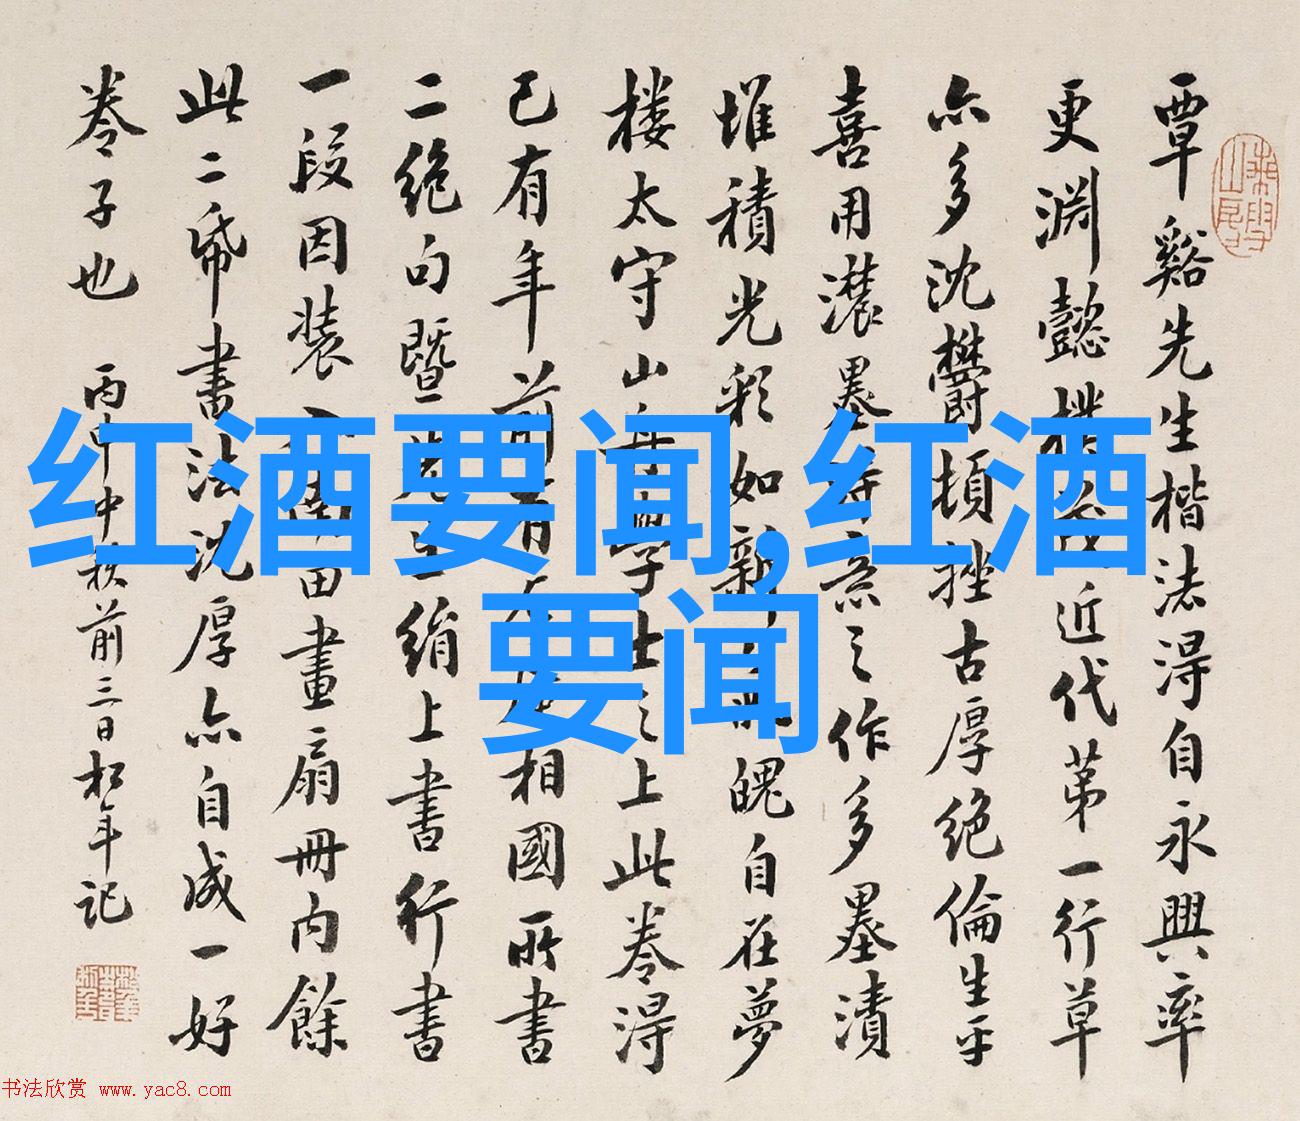 覃谿先生楷法得自永興率
更淵懿樸 近代苐一行草
亦多沈欝頓挫古厚絶倫生平
喜用濃墨 意之作多墨漬
堆積光彩如新 魄自在夢
樓太守山舟學士之上此卷得
已有年前 相國所書
二絶句暨 絹上書行書
一段因裝 畫扇冊内餘
此二帋書法沈厚亦自成一好
卷子也 丙申中秋前三日松年記
红酒要闻,红酒
要闻
书法欣赏 www.yac8.com